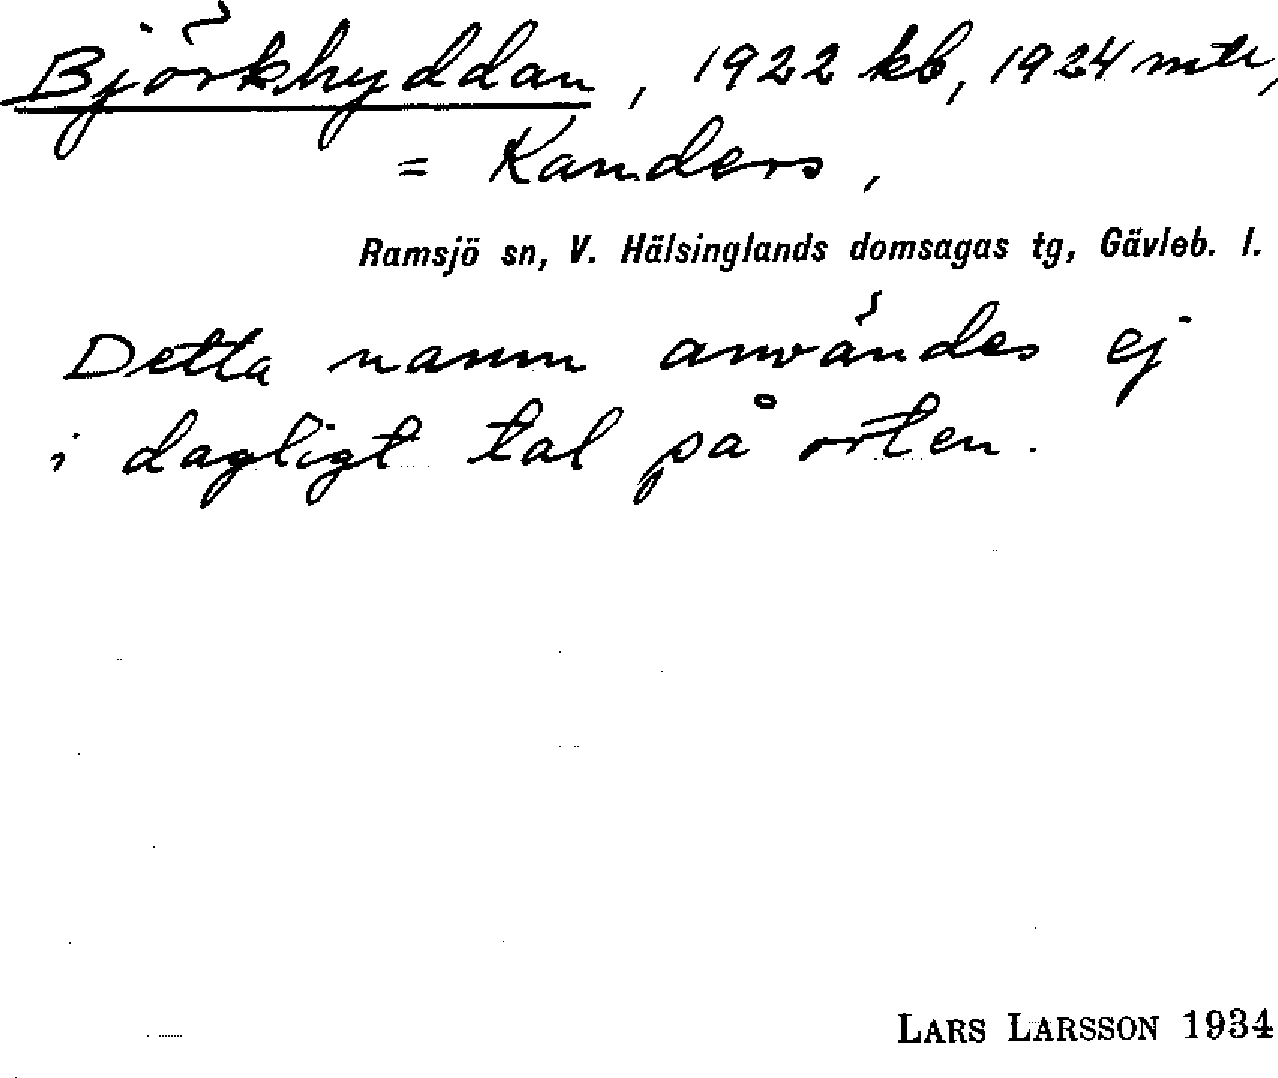 Björkhyddan, 1922 kb, 1924 mtr,
= Kanders,
Ramsjö sn, V. Hälsinglands domsagas tg, Gävleb. l.
Detta namn användes ej
i dagligt tal på orten.
LARS LARSSON 1934